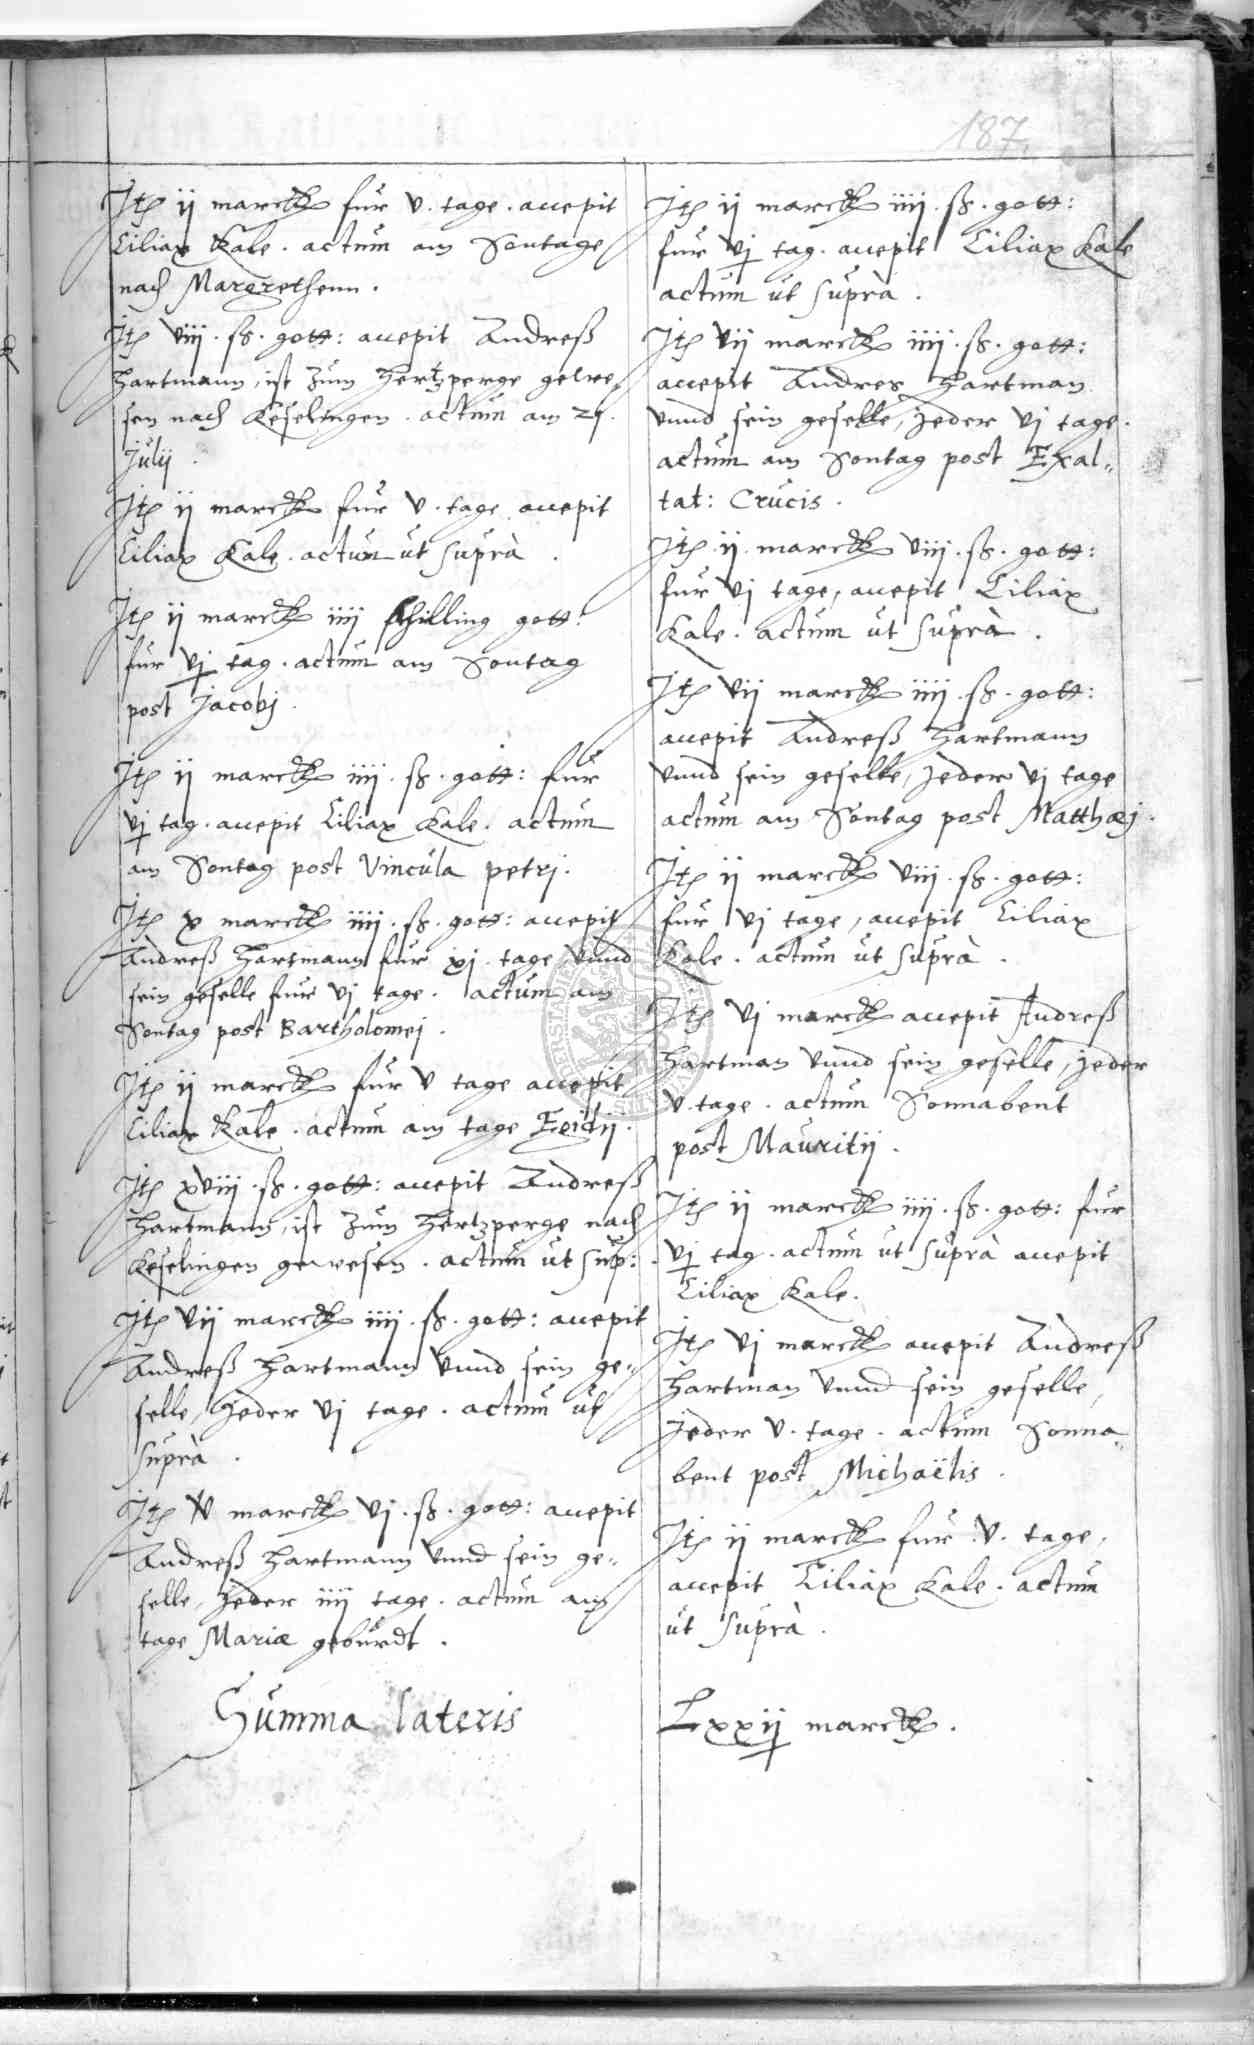 187.
Itē ij marckħ fur v. tage. accepit
Ciliax Kale. actum am Sontage
nach Margrethenn.
Itē viij. ß. gott: accepit Andreß
Hartmann, ist zum Hertzperge gewe„
sen nach Keselingen. actum am 21.
Julij.
Itē ij marckħ fur v. tage accepit
Ciliax Kale. actum ut suprà.
Itē ij marckħ iiij schilling gott:
fur vj tag. actum am Sontag
post Jacobj.
Itē ij marckħ iiij. ß. gott: fur
vj tag. accepit Ciliax Kale. actum
am Sontag post Vincula petrj.
Itē x marckħ iiij. ß. gott: accepit
Andreß Hartmann fur xj. tage, vnnd
sein geselle fur vj tage. actum am
Sontag post Bartholomej.
Itē ij marckħ fur v tage accepit
Ciliax Kale. actum am tage Egidij.
Itē xviij. ß. gott: accepit Andreß
Hartmann, ist zum Hertzperge nach
Keselingen gewesen. actum ut sup:
Itē vij marckħ iiij. ß. gott: accepit
Andreß Hartmann vnnd sein ge„
selle, Jeder vj tage. actum ut
suprà.
Itē marckħ vj. ß. gott: accepit
Andreß Hartmann vnnd sein ge„
selle, Jeder iiij tage. actum am
tage Mariæ geburdt.
Summa lateris
Itē ij marckħ iiij. ß. gott:
fur vj tag. accepit Ciliax Kale
actum ut suprà.
Itē vij marckħ iiij. ß. gott:
accepit Andres Hartman
vnnd sein geselle, Jeder vj tage.
actum am Sontag post Exal„
tat: Crucis.
Itē ij marckħ viij. ß. gott:
fur vj tage, accepit Ciliax
Kale. actum ut suprà.
Itē vij marckħ iiij. ß. gott:
accepit Andreß Hartmann
vnnd sein geselle, Jeder vj tage
actum am Sontag post Matthæj.
Itē ij marckħ viij. ß. gott:
fur vj tage, accepit Ciliax
Kale. actum ut suprà.
Itē vj marckħ accepit Andreß
Hartman vnnd sein geselle, Jeder
v. tage. actum Sonnabent
post Mauritij.
Itē ij marckħ iiij. ß. gott: fur
vj tag. actum ut suprà accepit
Ciliax Kale.
Itē vj marckħ accepit Andreß
Hartman vnnd sein geselle,
Jeder v. tage. actum Sonna„
bent post Michaëlis.
Itē ij marckħ fur v. tage,
accepit Ciliax Kale. actum
ut suprà.
Lxxij marckħ.